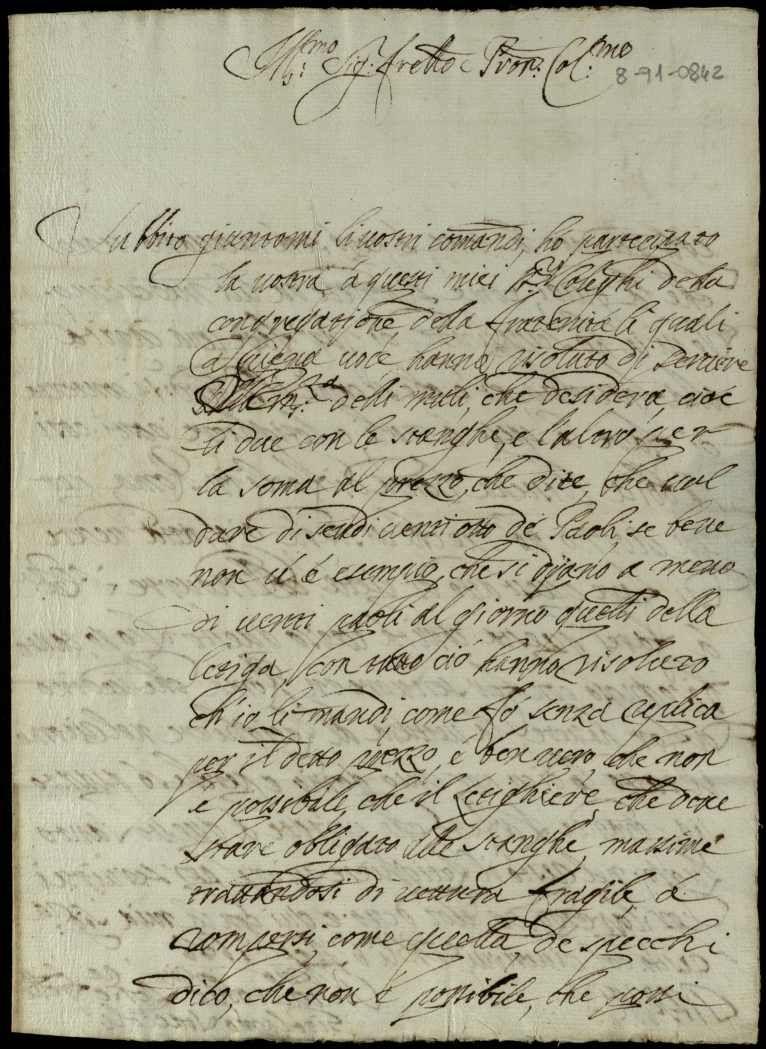 Ill:mo Sig: fretto e Pron: Col:mo
8-91-0842
Subbito giuntomi li vostri comandi, hò partecipato
la vostra à questi miei Colleghi della
congregazione della fraternita li quali
a piena voce hanno risoluto di servire
delli muli, che desidera, cioe
li due con le stanghe, e l'altro per
la soma al prezzo, che dice, che vol
dare di scudi vent'otto de Paoli, se bene
non vi é esempio, che si diano a meno
di venti paoli al giorno quelli della
letiga, con tutto ciò hanno risoluto
ch'io li mandi, come fò, senza replica
per il detto prezzo, é ben vero, che non
e possibile, che il letighiere, che deve
stare obligato alle stanghe, massime
trattandosi di vettura fragile, à
rompersi, come quella, de specchi
dico, che non é possibile, che possi